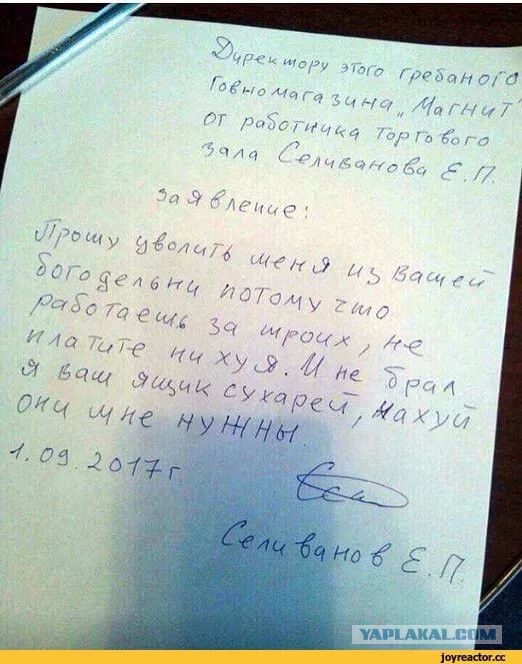 Директору этого гребаного
Говномагазина „Магнит"
от работника торгового
зала Селиванова Е.П.
заявление:
Прошу уволить меня из вашей
богодельни потому что
работаешь за троих, не
платите ни хуя. И не брал
я ваш ящик сухарей, нахуй
они мне нужны
1.09.2017г.
Селиванов Е.П.
YAPLAKAL.COM
joyreactor.cc